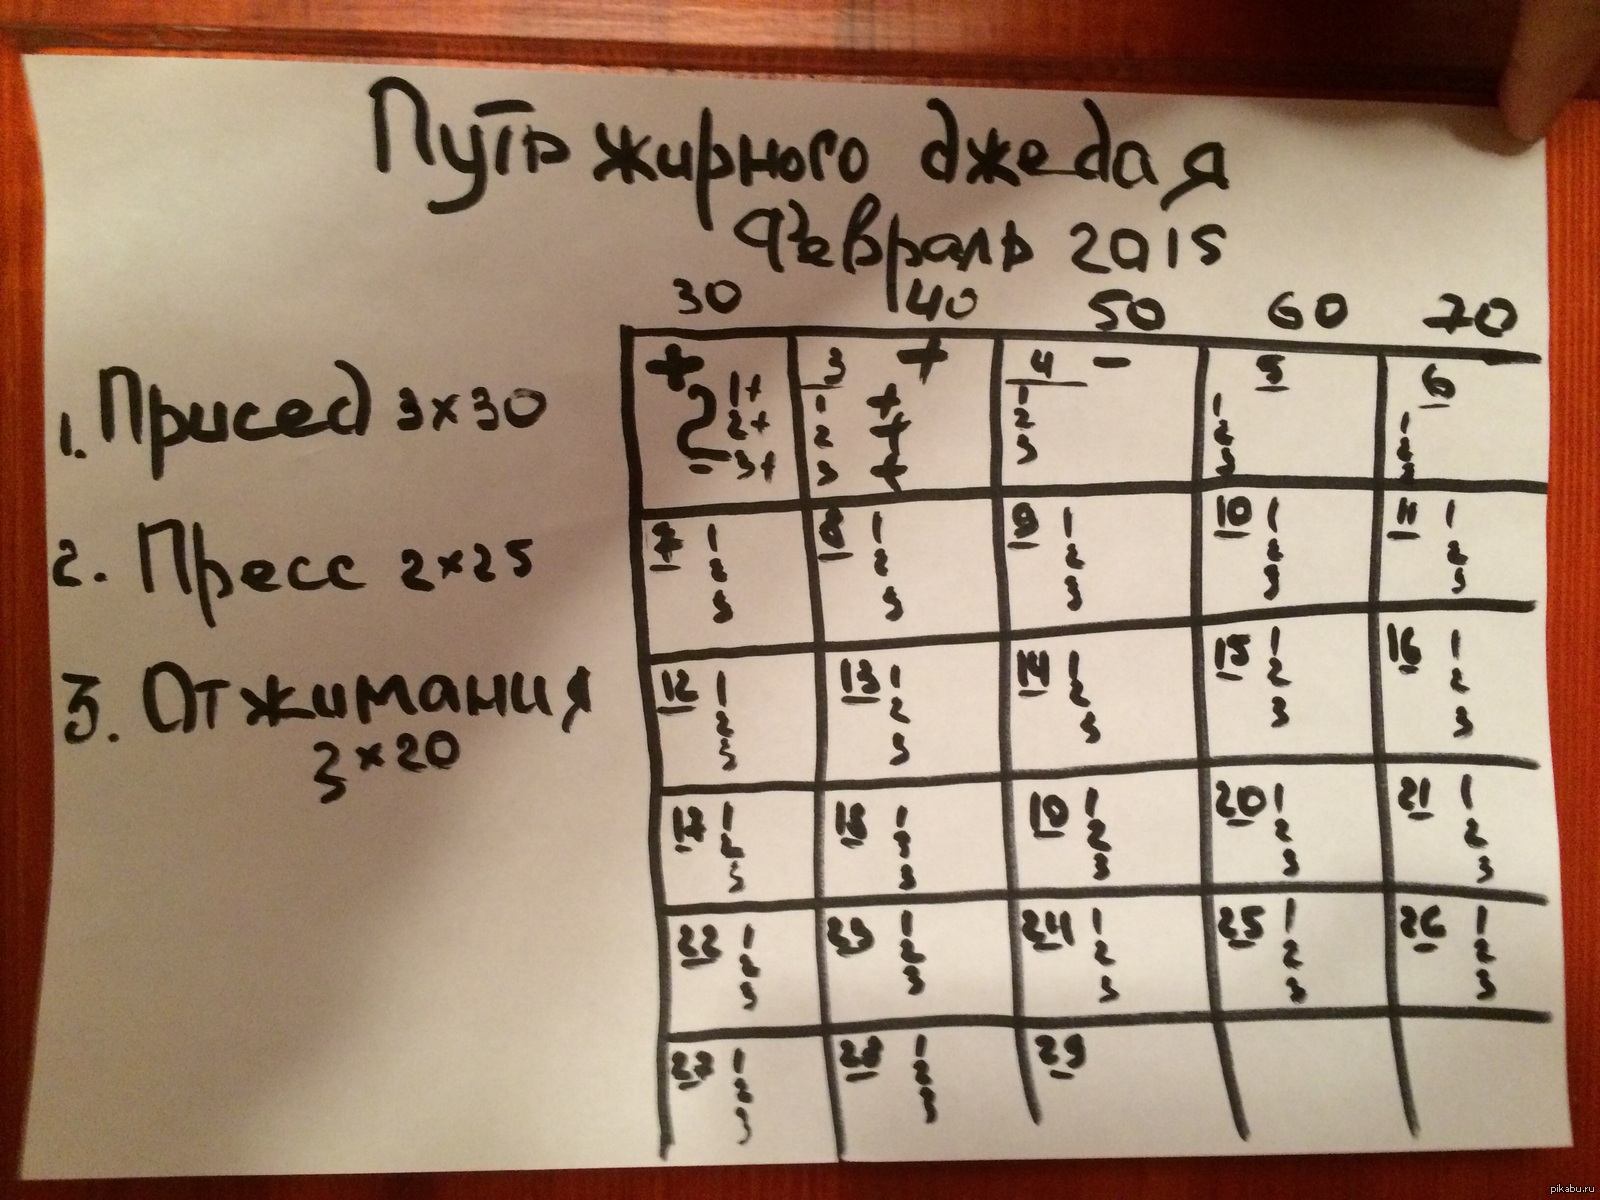 Путь жирного джедая
Февраль 2015
30 40 50 60 70
1. Присед 3x30
2. Пресс 2x25
3. Отжимания
3x20
+ 2 1+ 2+ 3+
3 + 1 + 2 + 3 +
4 - 1 2 3
5 1 2 3
6 1 2 3
7 1 2 3
8 1 2 3
9 1 2 3
10 1 2 3
11 1 2 3
12 1 2 3
13 1 2 3
14 1 2 3
15 1 2 3
16 1 2 3
17 1 2 3
18 1 2 3
19 1 2 3
20 1 2 3
21 1 2 3
22 1 2 3
23 1 2 3
24 1 2 3
25 1 2 3
26 1 2 3
27 1 2 3
28 1 2 3
29
pikabu.ru